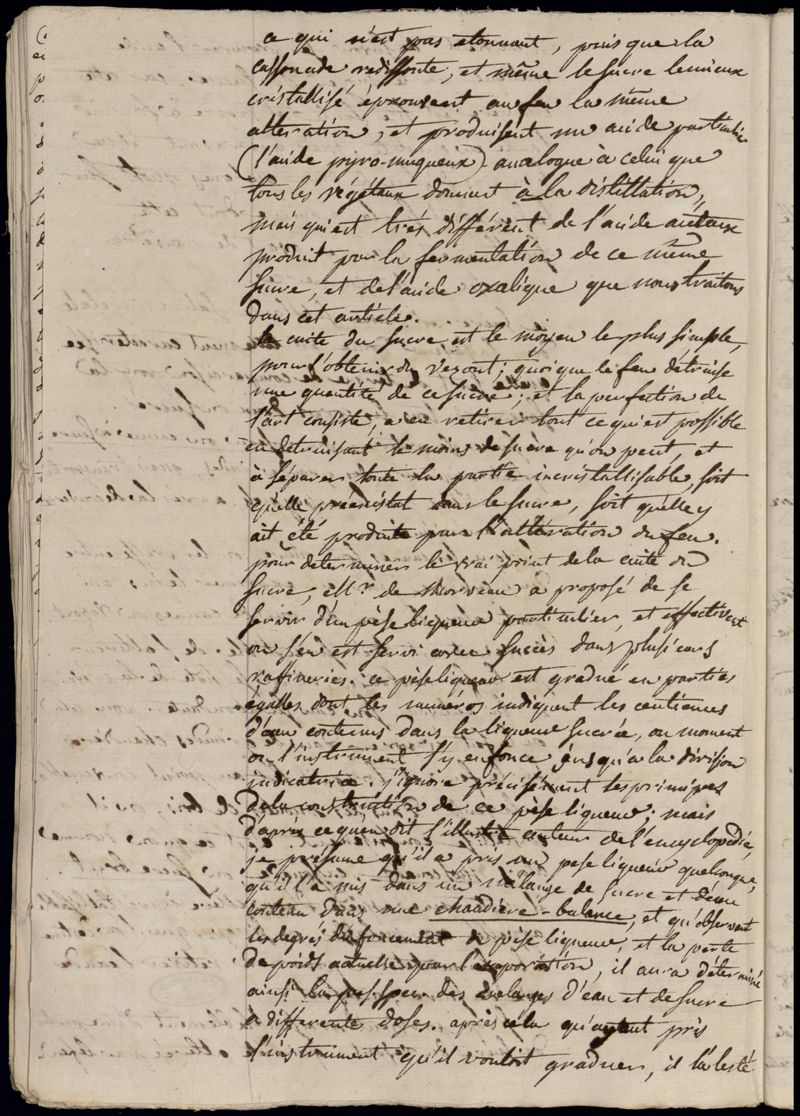 ce qui n'est pas etonnant, puis que la
cassonade rediffoute, et même le sucre le mieux
cristallisé éprouvent au feu la même
alteration, et produisent un acide particulier
(l'acide pyro-muqueux) analogue à celui que
tous les végétaux donnent à la distillation,
mais qui est trés différent de l'acide aceteux
produit par la fermentation de ce même
sucre, et de l'acide oxalique que nous traitons
dans cet article.
la cuite du sucre est le moyen le plus simple,
pour l'obtenir du vezout; quoique le feu détruise
une quantité de ce sucre; et la perfection de
l'art consiste, a en retirer tout ce qui est possible
en detruisant le moins de sucre qu'on peut, et
à séparer toute la partie incristallisable, soit
qu'elle preexistat dans le sucre, soit qu'elle y
ait été produite par l'altération du feu.
pour determiner le vrai point de la cuite du
sucre, M.r de Morveau a proposé de se
servir d'un pèse liqueur particulier, et effectivement
on s'en est servi avec succès dans plusieurs
raffineries. ce pèse liqueur est gradué en parties
égalles dont les numéros indiquent les centiemes
d'eau contenus dans la liqueur sucrée, au moment
ou l'instrument s'y enfonce jusqu'a la division
indicatrice. j'ignore précisément les principes
de la construction de ce pèse liqueur; mais
d'après ce qu'en dit l'illustre auteur de l'encyclopedie,
je présume qu'il a pris un pese liqueur quelconque,
qu'il l'a mis dans un mélange de sucre et d'eau
contenu dans une chaudiere-balance, et qu'observant
les degrés d'enfoncement du pèse liqueur, et la perte
de poids actuelle par l'evaporation, il aura déterminé
ainsi la pes. spec. des mélanges d'eau et de sucre
à differente doses. après cela qu'ayant pris
l'instrument qu'il vouloit graduer, il l'a lesté